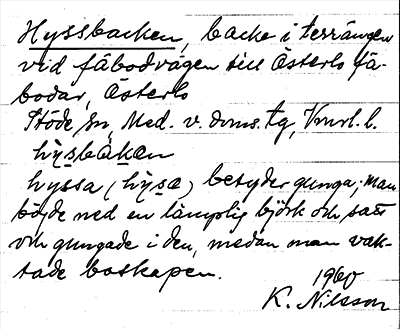 Hyssbacken, backe i terrängen
vid fäbodvägen till Österlo fä-
bodar, Österlo
Stöde sn, Med. v. doms. tg, Vnrl. l.
hy̱sbàkan
hyssa (hy̱sa) betyder gunga; Man
böjde ned en lämplig björk och satt
och gungade i den, medan man vak-
tade boskapen.
1960
K. Nilsson